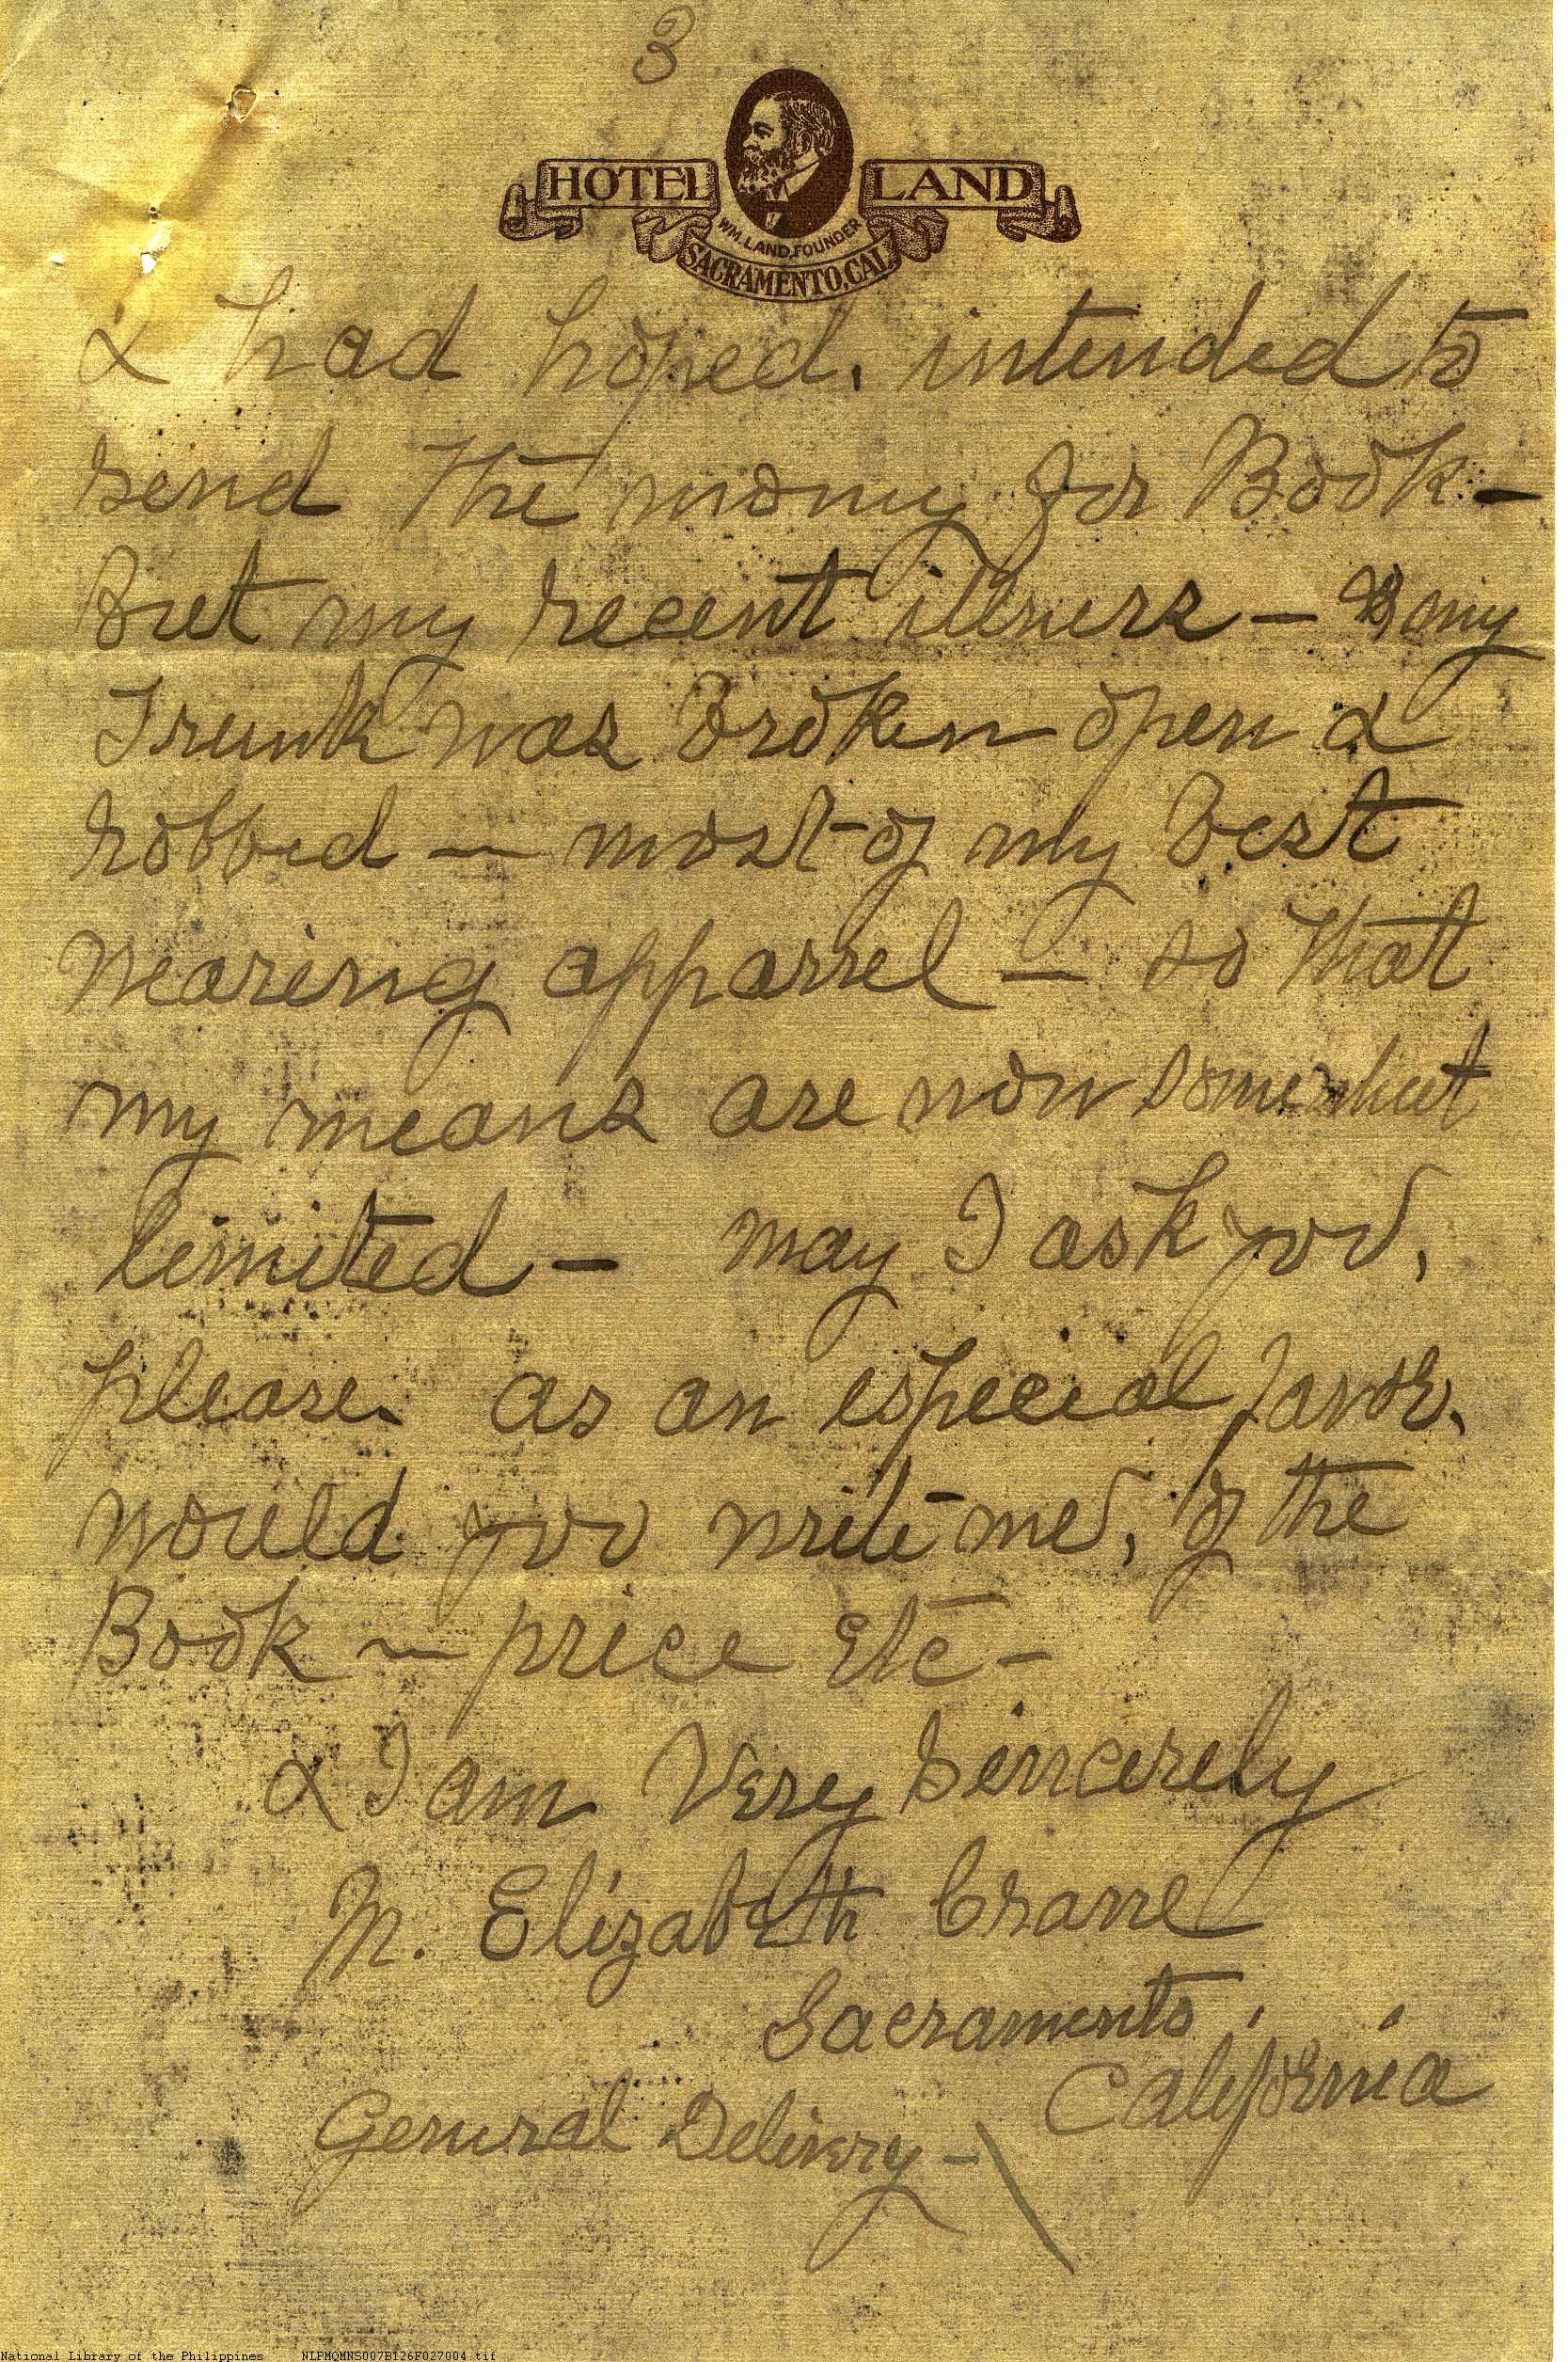 3
HOTEL LAND
WM. LAND, FOUNDER
SACRAMENTO, CAL.
& had hoped, intended to
send the money for Book -
But my recent illness - & my
Trunk was Broken open &
robbed - most of my best
wearing apparrel - so that
my means are now somewhat
limited - may I ask you,
please. as an especial favor,
would you write me, of the
Book ~ price Etc -
& I am Very Sincerely
M. Elizabeth Crane
Sacramento
California
General Delivery -
National Library of the Philippines NLPMQMNS007B126F027004.tif